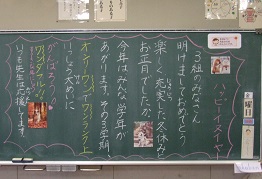 ハッピーイヤー
3組のみなさん
明けましておめでとう
楽しく充実した冬休みと
お正月でしたか。
今年はみんな学年が
あがります。その3学期、
オンリーワンでワンランク上
いっしょに
がんばろう
ワンダフル
いつも先生は応援してます。
曜日